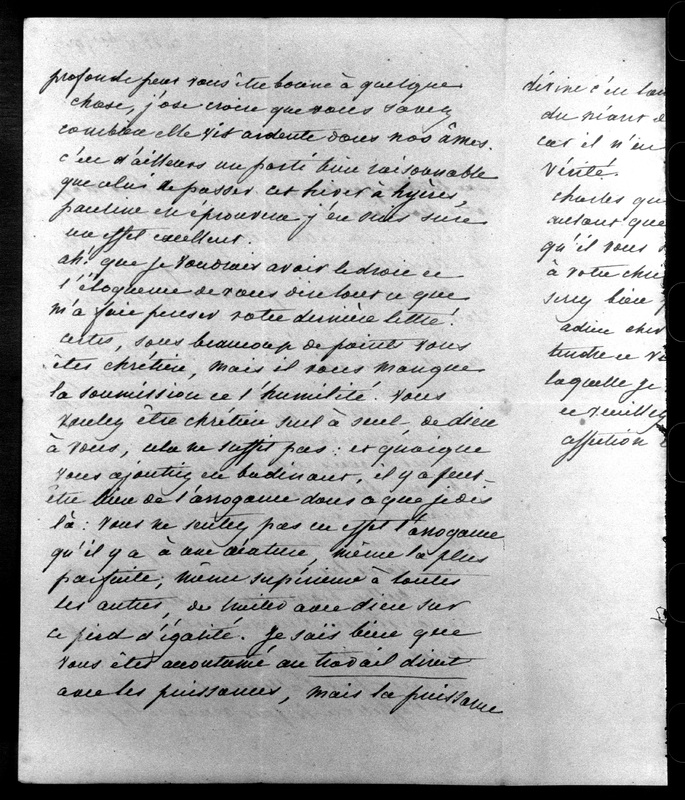 profonde peut vous être bonne à quelque
chose, j'ose croire que vous savez
combien elle vit ardente dans nos âmes.
c'en d'ailleurs un parti bien raisonnable
que celui de passer cet hiver à hyères,
pauline en éprouvera j'en suis sûre
un effet excellent.
ah! que je voudrais avoir le droit et
l'éloquence de vous dire tout ce que
m'a fait penser votre dernière lettre!
certes, sous beaucoup de points vous
êtes chrétien, mais il vous manque
la soumission et l'humilité. Vous
voulez être chrétien seul à seul, de dieu
à vous, cela ne suffit pas: et quoique
vous ajoutiez en badinant, il y a peut-
être bien de l'arrogance dans ce que je dis
là: vous ne sentez pas en effet l'arrogance
qu'il y a à une créature, même la plus
parfaite, même supérieure à toutes
les autres, de traiter avec dieu sur
ce pied d'égalité. Je sais bien que
vous êtes accoutumé au travail direct
avec les puissances, mais la puissance
divine c'en
du néant
car il n'en
vérité.
charles
autant que
qu'il vous
à votre
serez bien
adieu cher
tendre et
laquelle je
et veuillez
affection